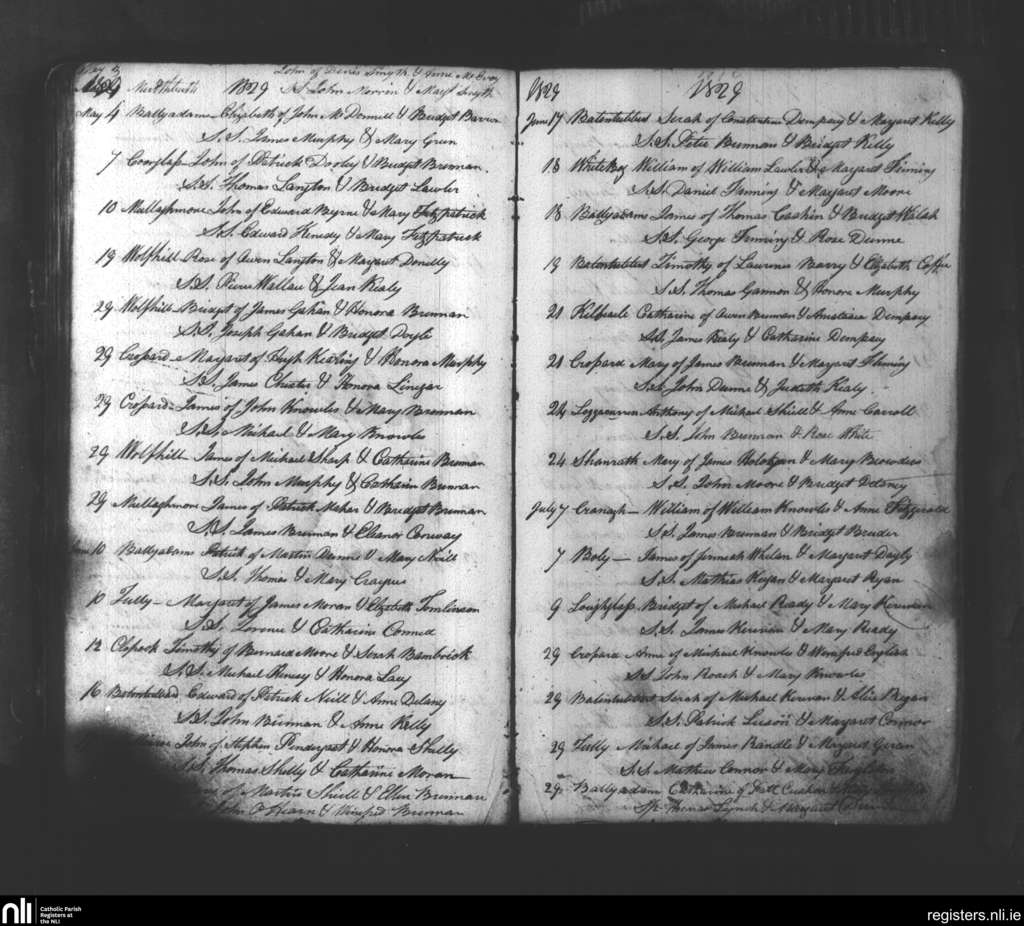 May 3 John of Denis Smyth & Anne McEvoy
1829 1829 S.S. John Morrin & Mary Smyth
May 4 Ballyadams Elizabeth of John McDonnell & Bridget Baron
S.S. James Murphy & Mary Green
7 John of Patrick Dooley & Bridget Brennan.
S.S. Thomas Langton & Bridget Lawler
10 Mullaghmore John of Edward Byrne & Mary Fitzpatrick
S.S. Edward Kenedy & Mary Fitzpatrick
19 Wolfhill Rose of Owen Langton & Margaret Donolly
S.S. Pierce Wallace & Jean Kealy
29 Wolfhill Bridget of James Gahan & Honora Brennan
S.S. Joseph Gahan & Bridget Doyle
29 Cropard Margaret of Hugh Keating & Honora Murphy
S.S. James Chester & Honora
29 Cropard James of John Knowles & Mary Brennan
S.S. Michael & Mary Knowles
29 Wolfhill James of Michael Sharp & Catharine Brennan
S.S. John Murphy & Catharine Brennan
29 Mullaghmore James of Patrick Meher & Bridget Brennan
S.S. James Brennan & Eleanor Conway
June 10 Ballyadams Patrick of Martin Dunne & Mary Neill
S.S. Thomas & Mary
10 Tully Margaret of James Moran & Elizabeth Tomlinson
S.S. & Catharine
12 Clopook Timothy of Bernard Moore & Sarah Bambrick
S.S. Michael & Honora Lacy
16 Edward of Patrick Neill & Anne Delany
S.S. John Brennan & Anne Kelly
John of Stephen Pendergast & Honora Shelly
S.S. Thomas Shelly & Catharine Moran
of Martin Shiell & Ellen Brennan
John O Hearn & Winefred Brennan
1829 1829
June 17 Batentubbert Sarah of Constantine Dempsey & Margaret Kelly
S.S. Peter Brennan & Bridget Kelly
18 William of William Lawler & Margaret Finning
S.S. Daniel Fanning & Margaret Moore
18 Ballyadams James of Thomas Cashin & Bridget Walsh
S.S. George Fenning & Rose Dunne
19 Batentubbert Timothy of Laurence Barry & Elizabeth
S.S. Thomas Gannon & Honora Murphy
21 Catharine of Owen Brennan & Anastasia Dempsey
S.S. James Kealy & Catharine Dempsey
21 Cropard Mary of James Brennan & Margaret Fleming
S.S. John Dunne & Judith Kealy
24 Anthony of Michael Shiell & Anne Carroll
S.S. John Brennan & Rose White
24 Shanrath Mary of James & Mary
S.S. John Moore & Bridget Delaney
July 7 Cranagh William of William Knowles & Anne Fitzgerald
S.S. James Brennan & Bridget
7 Boly James of Jeremiah Whelan & Margaret Dayly
S.S. Mathias Kegan & Margaret Ryan
9 Bridget of Michael Ready & Mary Kerwan
S.S. James Kerwan & Mary Ready
29 Cropard Anne of Michael Knowles & Winefred English
S.S. John Roach & Mary Knowles
29 Batentubbert Sarah of Michael Kerwan & Alice Ryan
S.S. Patrick & Margaret Connor
29 Tully Michael of James Randle & Margaret
S.S. Mathew Connor & Mary
29 Ballyadams Catharine of
Thomas Lynch & Margaret
nli
Catholic Parish
Registers at
the NLI
registers.nli.ie